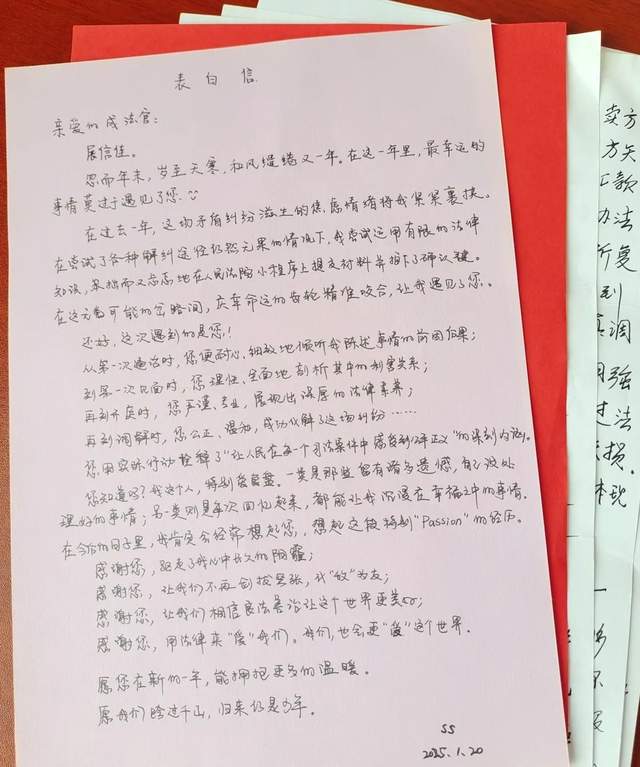 表白信
亲爱的成法官：
展信佳。
忽而年末，岁至天寒，和风缱绻又一年。在这一年里，最幸运的
事情莫过于遇见了您。
在过去一年，这场矛盾纠纷滋生的焦虑情绪将我紧紧裹挟。
在尝试了各种解纠途径仍然无果的情况下，我尝试运用有限的法律
知识，笨拙而又忐忑地在人民法院小程序上提交材料并摁下了确认键。
在这无数可能的岔路间，庆幸命运的齿轮精准咬合，让我遇见了您。
还好，这次遇到的是您！
从第一次通话时，您便耐心、细致地倾听我陈述事情的前因后果；
到第一次见面时，您理性、全面地剖析其中的利害关系；
再到开庭时，您严谨、专业，展现出深厚的法律素养；
再到调解时，您公正、温和，成功化解了这场纠纷……
您用实际行动诠释了"让人民在每个司法案件中感受到公平正义"的深刻内涵。
您知道吗？我这个人，特别爱复盘。一类是那些留有诸多遗憾，自己没处
理好的事情；另一类则是每次回忆起来，都能让我沉浸在幸福之中的事情。
在今后的日子里，我肯定会经常想起您，想起这段特别"Passion"的经历。
感谢您，驱走了我心中长久的阴霾；
感谢您，让我们不再剑拔弩张，化"敌"为友；
感谢您，让我们相信良法善治让这个世界更美好；
感谢您，用法律来"爱"我们。我们，也会更"爱"这个世界。
愿您在新的一年，能拥抱更多的温暖。
愿我们跨过千山，归来仍是少年。
SS
2025.1.20
卖方
方矢
款
办法
折复
到
调
强
过法
损。
现
一